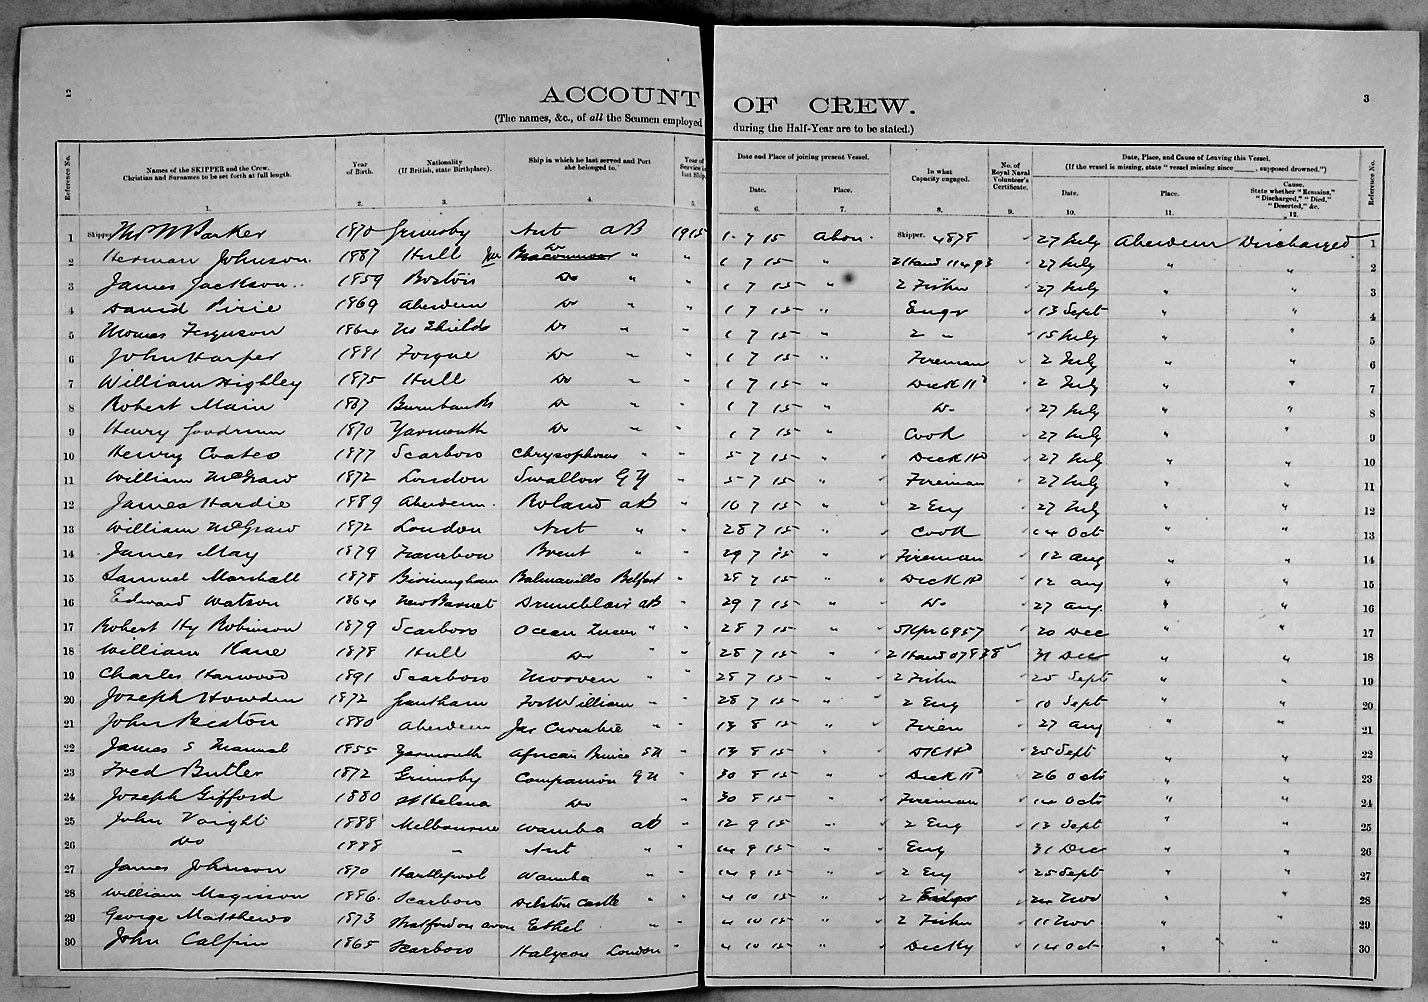 2
3
ACCOUNT OF CREW.
(The names, &c., of all the Seamen employed during the Half-Year are to be stated.)
Reference No. Names of the SKIPPER and the Crew. Christian and Surnames to be set forth at full length. Year of Birth. Nationality (If British, state Birthplace). Ship in which he last served and Port she belonged to. Year of Service in last Ship. Date and Place of joining present Vessel. In what Capacity engaged. No. of Royal Naval Volunteer's Certificate. Date, Place, and Cause of Leaving this Vessel. (If the vessel is missing, state "vessel missing since ____, supposed drowned.") Reference No.
Date. Place. Date. Place. Cause. State whether "Remains," "Discharged," "Died," "Deserted," &c.
1. 2. 3. 4. 5. 6. 7. 8. 9. 10. 11. 12.
1 Skipper Thos W Barker 1870 Grimsby Nut AB 1915 1 7 15 Abdn. Skipper. 4878 27 July Aberdeen Discharged 1
2 Herman Johnson 1887 Hull Do " " 1 7 15 " 2 Hand 11493 27 July " " 2
3 James Jackson 1859 Boston Do " " 1 7 15 " 2 Fisher 27 July " " 3
4 David Pirie 1869 Aberdeen Do " " 1 7 15 " Engr 13 Sept " " 4
5 Thomas Ferguson 1864 No Shields Do " " 1 7 15 " 2 " 15 July " " 5
6 John Harper 1881 Forgue Do " " 1 7 15 " Fireman 2 July " " 6
7 William Highley 1875 Hull Do " " 1 7 15 " Deck Hd 2 July " " 7
8 Robert Main 1887 Burnbanks Do " " 1 7 15 " Do 27 July " " 8
9 Henry Goodrum 1870 Yarmouth Do " " 1 7 15 " Cook 27 July " " 9
10 Henry Coates 1877 Scarboro Chrysophrase " " 5 7 15 " Deck Hd 27 July " " 10
11 William McGraw 1872 London Swallow GY " 5 7 15 " Fireman 27 July " " 11
12 James Hardie 1889 Aberdeen Roland AB " 10 7 15 " 2 Eng 27 July " " 12
13 William McGraw 1872 London Nut " " 28 7 15 " Cook 14 Oct " " 13
14 James May 1879 Brent " " 29 7 15 " Fireman 12 Aug " " 14
15 Samuel Marshall 1878 Birmingham Balnaville Belfast " 28 7 15 " Deck Hd 12 Aug " " 15
16 Edward Watson 1864 New Barnet Drumblair AB " 29 7 15 " Do 27 Aug " " 16
17 Robert Hy Robinson 1879 Scarboro Ocean Queen " " 28 7 15 " Skpr 6957 20 Dec " " 17
18 William Kane 1878 Hull Do " 28 7 15 " 2 Hand 07938 31 Dec " " 18
19 Charles Harwood 1891 Scarboro Morven " " 28 7 15 " 2 Fishn 25 Sept " " 19
20 Joseph Howden 1872 Grantham Fort William " " 28 7 15 " 2 Eng 10 Sept " " 20
21 John Beaton 1880 Aberdeen Jas Crombie " " 13 8 15 " Firem 27 Aug " " 21
22 James S Manuel 1855 Yarmouth African Prince SN " 13 8 15 " Dk Hd 25 Sept " " 22
23 Fred Butler 1872 Grimsby Companion GY " 30 8 15 " Deck Hd 26 Oct " " 23
24 Joseph Gifford 1880 St Helena Do " 30 8 15 " Fireman 14 Oct " " 24
25 John Voight 1888 Melbourne Wamba AB " 12 9 15 " 2 Eng 13 Sept " " 25
26 Do 1888 " Nut " " 14 9 15 " Eng 31 Dec " " 26
27 James Johnson 1870 Hartlepool Wamba " " 14 9 15 " 2 Eng 25 Sept " " 27
28 William Maginson 1886 Scarboro Dilston Castle " " 4 10 15 " 2 24 Nov " " 28
29 George Matthews 1873 Stratford on Avon Ethel " " 4 10 15 " 2 Fishn 11 Nov " " 29
30 John Calpin 1865 Scarboro Halycon London " 4 10 15 " Decky 14 Oct " " 30